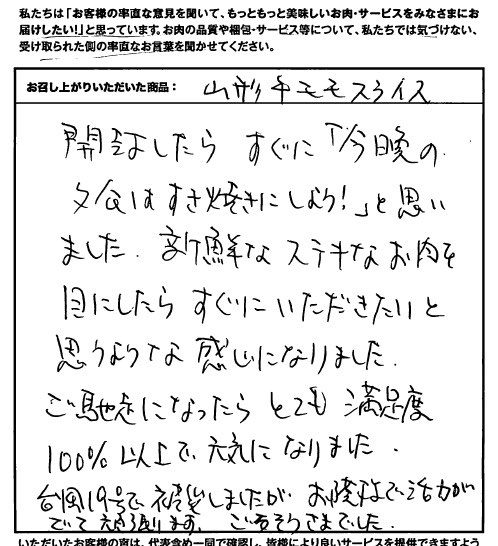 私たちは「お客様の率直な意見を聞いて、もっともっと美味しいお肉・サービスをみなさまにお
届けしたい!」と思っています。お肉の品質や梱包・サービス等について、私たちでは気づけない、
受け取られた側の率直なお言葉を聞かせてください。
お召し上がりいただいた商品： 山形牛モモスライス
開封したら すぐに「今晩の
夕食はすき焼きにしよう!」と思い
ました. 新鮮な ステキな お肉を
目にしたら すぐに いただきたいと
思うような 感じになりました.
ご馳走になったら とても 満足度
100%以上で、元気に なりました.
台風19号で、被災しましたが お陰様で活力が
でて 頑張ります. ごちそうさまでした.
いただいたお客様の声は、代表含め一同で確認し、皆様により良いサービスを提供できますよう